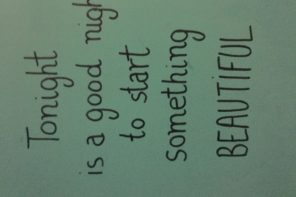 Tonight
is a good nigh
to start
something
BEAUTIFUL